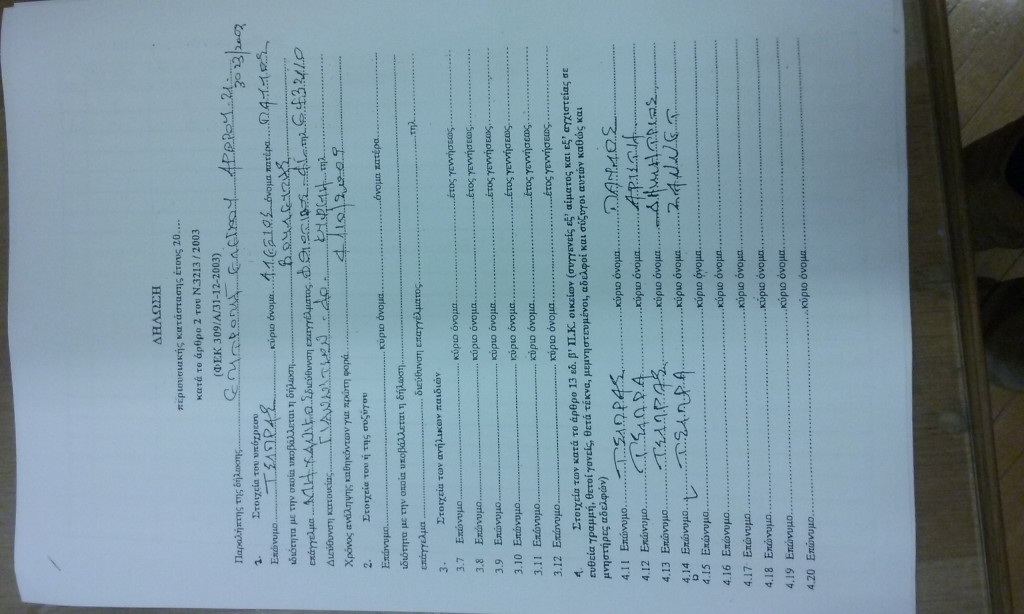 ΔΗΛΩΣΗ
περιουσιακής κατάστασης έτους 20....
κατά το άρθρο 2 του Ν.3213 / 2003
(ΦΕΚ 309/Α/31-12-2003)
Παραλήπτης της δήλωσης ΕΠΙΤΡΟΠΗ ΕΛΕΓΧΟΥ ΑΡΘΡΟΥ 21
3023/2002
1. Στοιχεία του υπόχρεου
Επώνυμο ΤΣΙΠΡΑΣ κύριο όνομα ΑΛΕΞΙΟΣ όνομα πατέρα ΠΑΥΛΟΣ
ιδιότητα με την οποία υποβάλλεται η δήλωση ΒΟΥΛΕΥΤΗΣ
επάγγελμα ΜΗΧΑΝΙΚΟΣ διεύθυνση επαγγέλματος τηλ.
Διεύθυνση κατοικίας τηλ.
Χρόνος ανάληψης καθηκόντων για πρώτη φορά 4/10/2009
2. Στοιχεία του ή της συζύγου
Επώνυμο κύριο όνομα όνομα πατέρα
ιδιότητα με την οποία υποβάλλεται η δήλωση
επάγγελμα διεύθυνση επαγγέλματος τηλ.
3. Στοιχεία των ανήλικων παιδιών
3.7 Επώνυμο κύριο όνομα έτος γεννήσεως
3.8 Επώνυμο κύριο όνομα έτος γεννήσεως
3.9 Επώνυμο κύριο όνομα έτος γεννήσεως
3.10 Επώνυμο κύριο όνομα έτος γεννήσεως
3.11 Επώνυμο κύριο όνομα έτος γεννήσεως
3.12 Επώνυμο κύριο όνομα έτος γεννήσεως
4. Στοιχεία των κατά το άρθρο 13 εδ. β' Π.Κ. οικείων (συγγενείς εξ' αίματος και εξ' αγχιστείας σε
ευθεία γραμμή, θετοί γονείς, θετά τέκνα, μεμνηστευμένοι, αδελφοί και σύζυγοι αυτών καθώς και
μνηστήρες αδελφών)
4.11 Επώνυμο ΤΣΙΠΡΑΣ κύριο όνομα ΠΑΥΛΟΣ
4.12 Επώνυμο ΤΣΙΠΡΑ κύριο όνομα ΑΡΙΣΤΗ
4.13 Επώνυμο ΤΣΙΠΡΑΣ κύριο όνομα ΔΗΜΗΤΡΙΟΣ
4.14 Επώνυμο ΤΣΙΠΡΑ κύριο όνομα ΖΑΝΝΕΤ
4.15 Επώνυμο κύριο όνομα
4.16 Επώνυμο κύριο όνομα
4.17 Επώνυμο κύριο όνομα
4.18 Επώνυμο κύριο όνομα
4.19 Επώνυμο κύριο όνομα
4.20 Επώνυμο κύριο όνομα